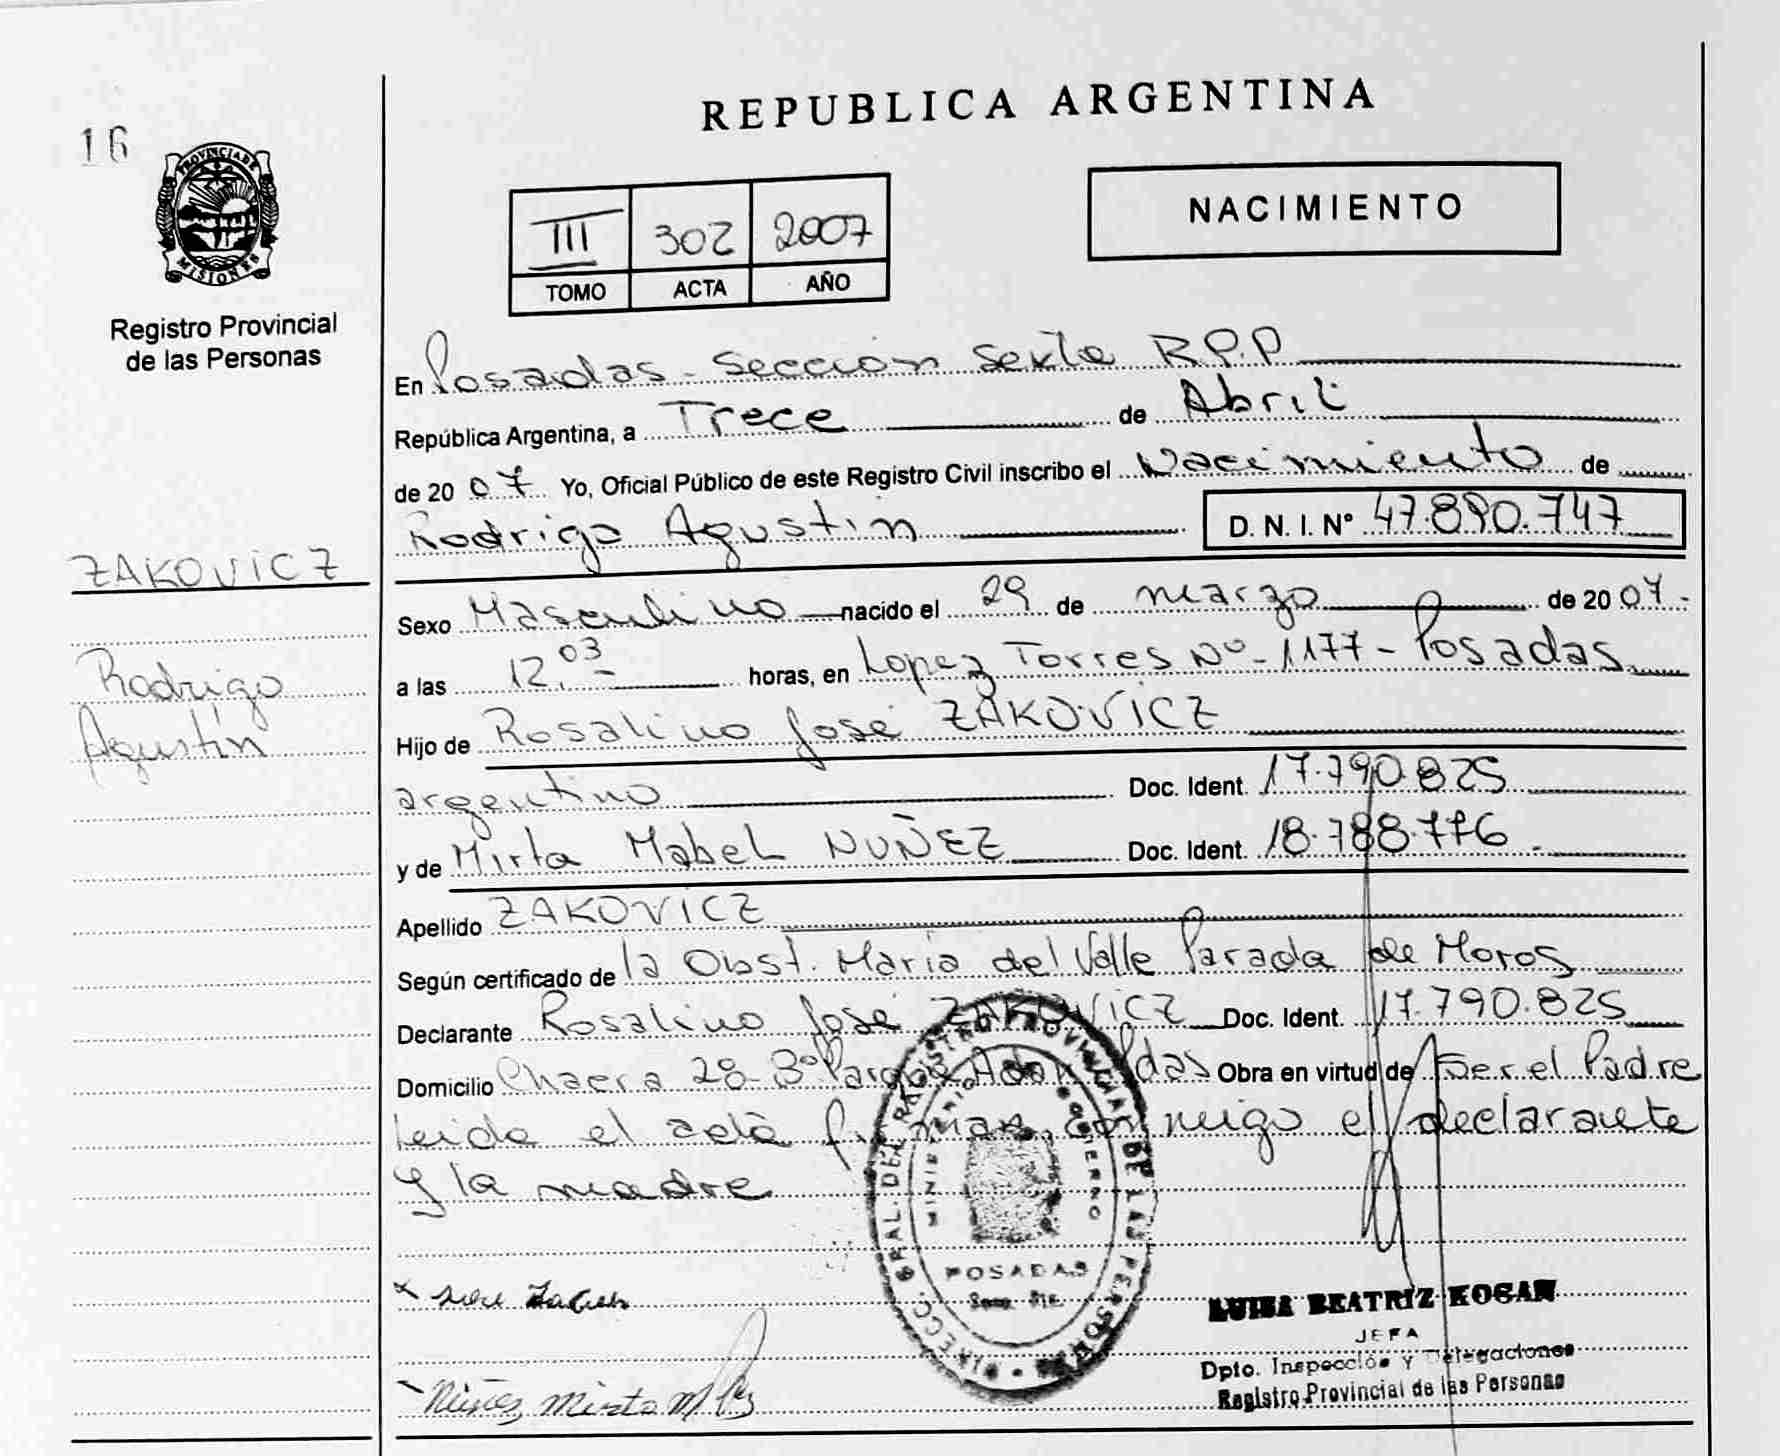 REPUBLICA ARGENTINA
16
PROVINCIA DE
MISIONES
Registro Provincial
de las Personas
III 302 2007
TOMO ACTA AÑO
NACIMIENTO
En Posadas - Sección Sexta R.P.P
República Argentina, a Trece de Abril
de 20 07 Yo, Oficial Público de este Registro Civil inscribo el Nacimiento de
Rodrigo Agustin D. N. I. Nº 47.890.747
ZAKOVICZ
Rodrigo
Agustín
Sexo Masculino nacido el 29 de marzo de 20 07.
a las 12,03 horas, en Lopez Torres Nº 1177 - Posadas
Hijo de Rosalino José ZAKOVICZ
argentino Doc. Ident. 17.790.825
y de Mirta Mabel NUÑEZ Doc. Ident. 18.788.776
Apellido ZAKOVICZ
Según certificado de la Obst. María del Valle Parada de Moros
Declarante Rosalino José ZAKOVICZ Doc. Ident. 17.790.825
Domicilio Chacra 28 Bº Parque Adam Pdas Obra en virtud de Ser el Padre
Leida el acta firman conmigo el declarante
y la madre
DIRECC. GRAL. DEL REGISTRO PROVINCIAL DE LAS PERSONAS
MINISTERIO DE GOBIERNO
POSADAS
Secc. 6ta.
LUISA BEATRIZ KOGAN
JEFA
Dpto. Inspección y Delegaciones
Registro Provincial de las Personas
Núñez Mirta M